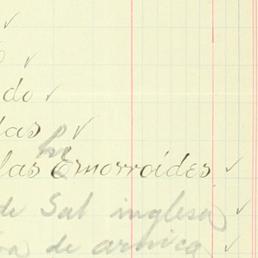 do ✓
las ✓
las he Emorroides ✓
de Sal inglesa ✓
de arnica ✓